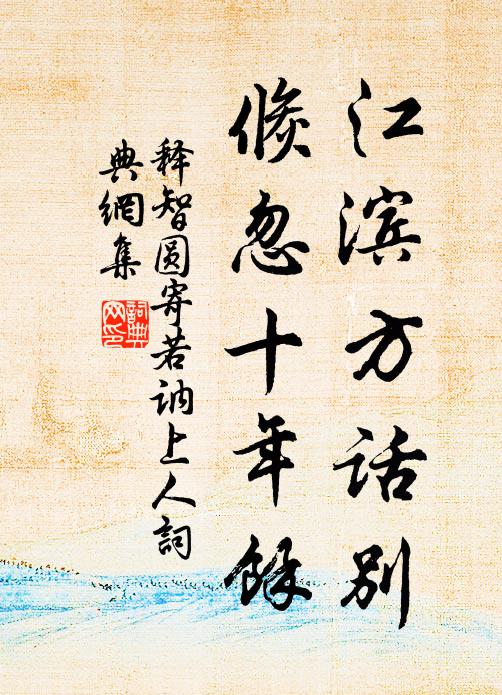 江滨方话别
倏忽十年馀
释智圆寄若讷上人词
典網集
詞典
网印